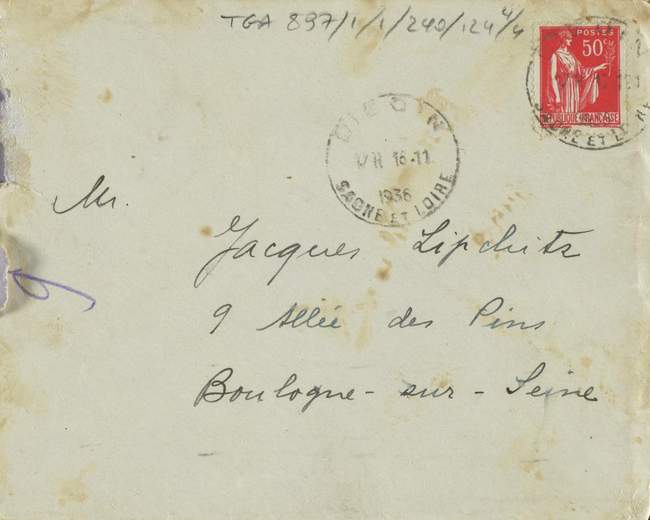 TGA 897/1/1/240/124 4/4
POSTES
50c
RÉPUBLIQUE FRANÇAISE
SAONE ET LOIRE
DIGOIN
16-11
1936
SAONE ET LOIRE
Mr.
Jacques Lipchitz
9 Allée des Pins
Boulogne-sur-Seine